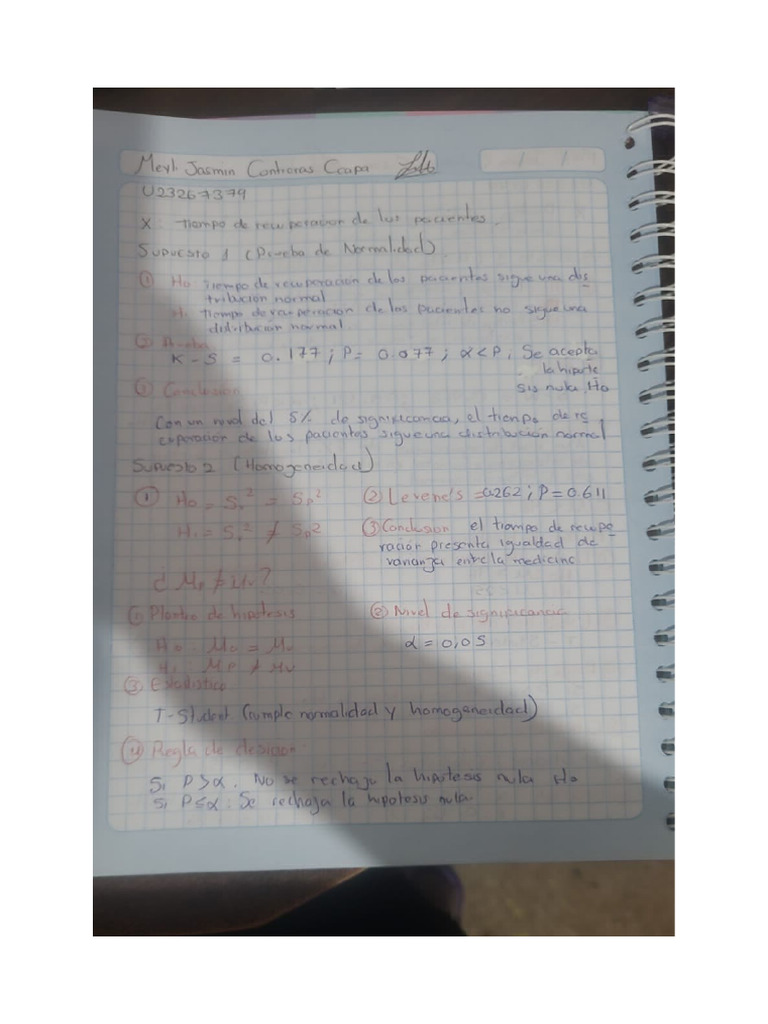 Meyli Jasmin Contreras Ccapa
U23267379
X: Tiempo de recuperacion de los pacientes.
Supuesto 1 (Prueba de Normalidad)
① Ho Tiempo de recuperación de los pacientes sigue una dis
tribución normal
H₁ Tiempo de recuperacion de los pacientes no sigue una
distribución normal.
② Prueba
K-S = 0.177; P= 0.077; α<P, Se acepta
la hipote
sis nula Ho
③ Conclusion
Con un nivel del 5% de significancia, el tiempo de re
cuperación de los pacientes sigue una distribución normal
Supuesto 2 (Homogeneidad)
① Ho = Sv² = Sp² ② Levene's =0.262; P=0.611
H₁ = Sv² ≠ Sp² ③ Conclusion el tiempo de recupe
ración presenta igualdad de
varianza entre la medicina
¿ Mp ≠ Mv?
① Planteo de hipotesis ② Nivel de significancia
Ho: Mp = Mv α = 0,05
H₁: Mp ≠ Mv
③ Estadistico
T-Student (cumple normalidad y homogeneidad)
④ Regla de decision
Si P>α. No se rechaza la hipotesis nula Ho
Si P≤α: Se rechaza la hipotesis nula